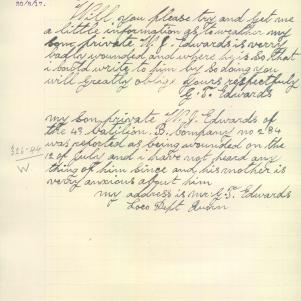 20/8/17.
Will you please try and get me
a little information as to weather my
son private W. J. Edwards is verry
badly wounded and where he is so that
i could write to him by so doing you
will greatly oblige yours respectfully
G. T. Edwards
my son private W. J. Edwards of
the 48 batilion. B. Company no 2184
was reported as being wounded on the
12 of July and i have not heard any
thing of him since and his mother is
verry anxious about him
my address is mr G. T. Edwards
Loco Dept
326-44
W